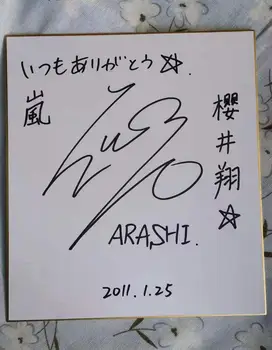 いつもありがとう☆
嵐
櫻井翔☆
ARASHI.
2011.1.25